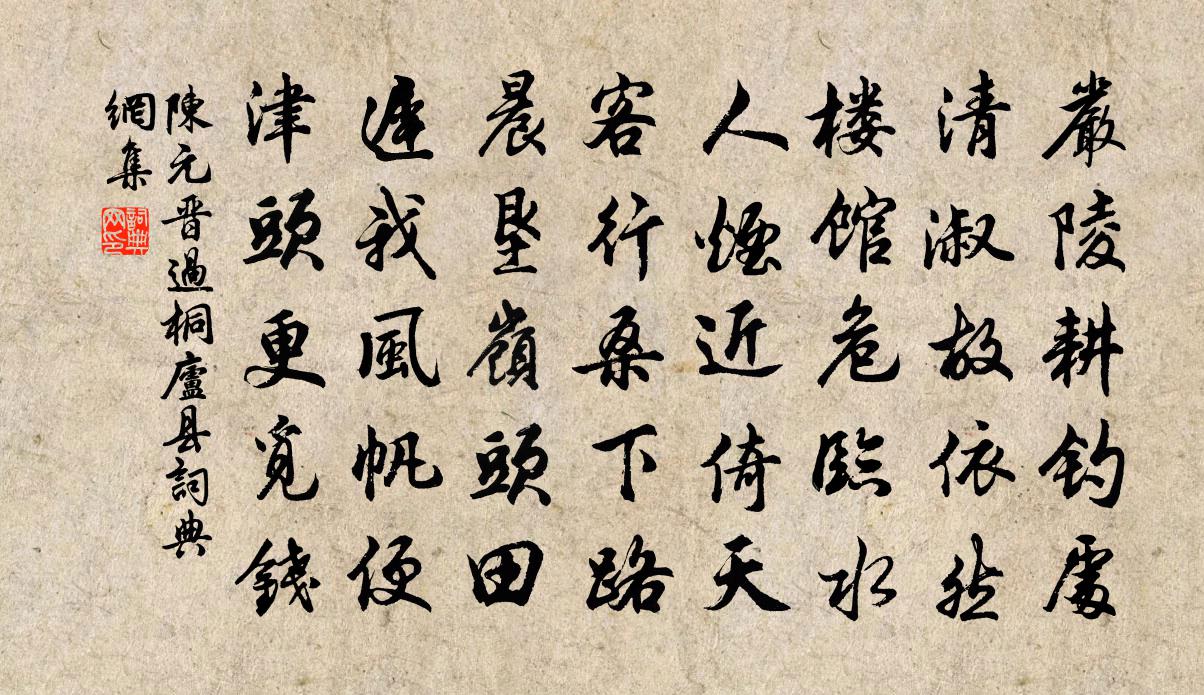 嚴陵耕钓處
清淑故依然
楼馆危臨水
人煙近倚天
客行桑下路
晨垦嶺頭田
遲我風帆便
津頭更覓錢
陳元晋過桐廬县詞典
網集
詞典
网印